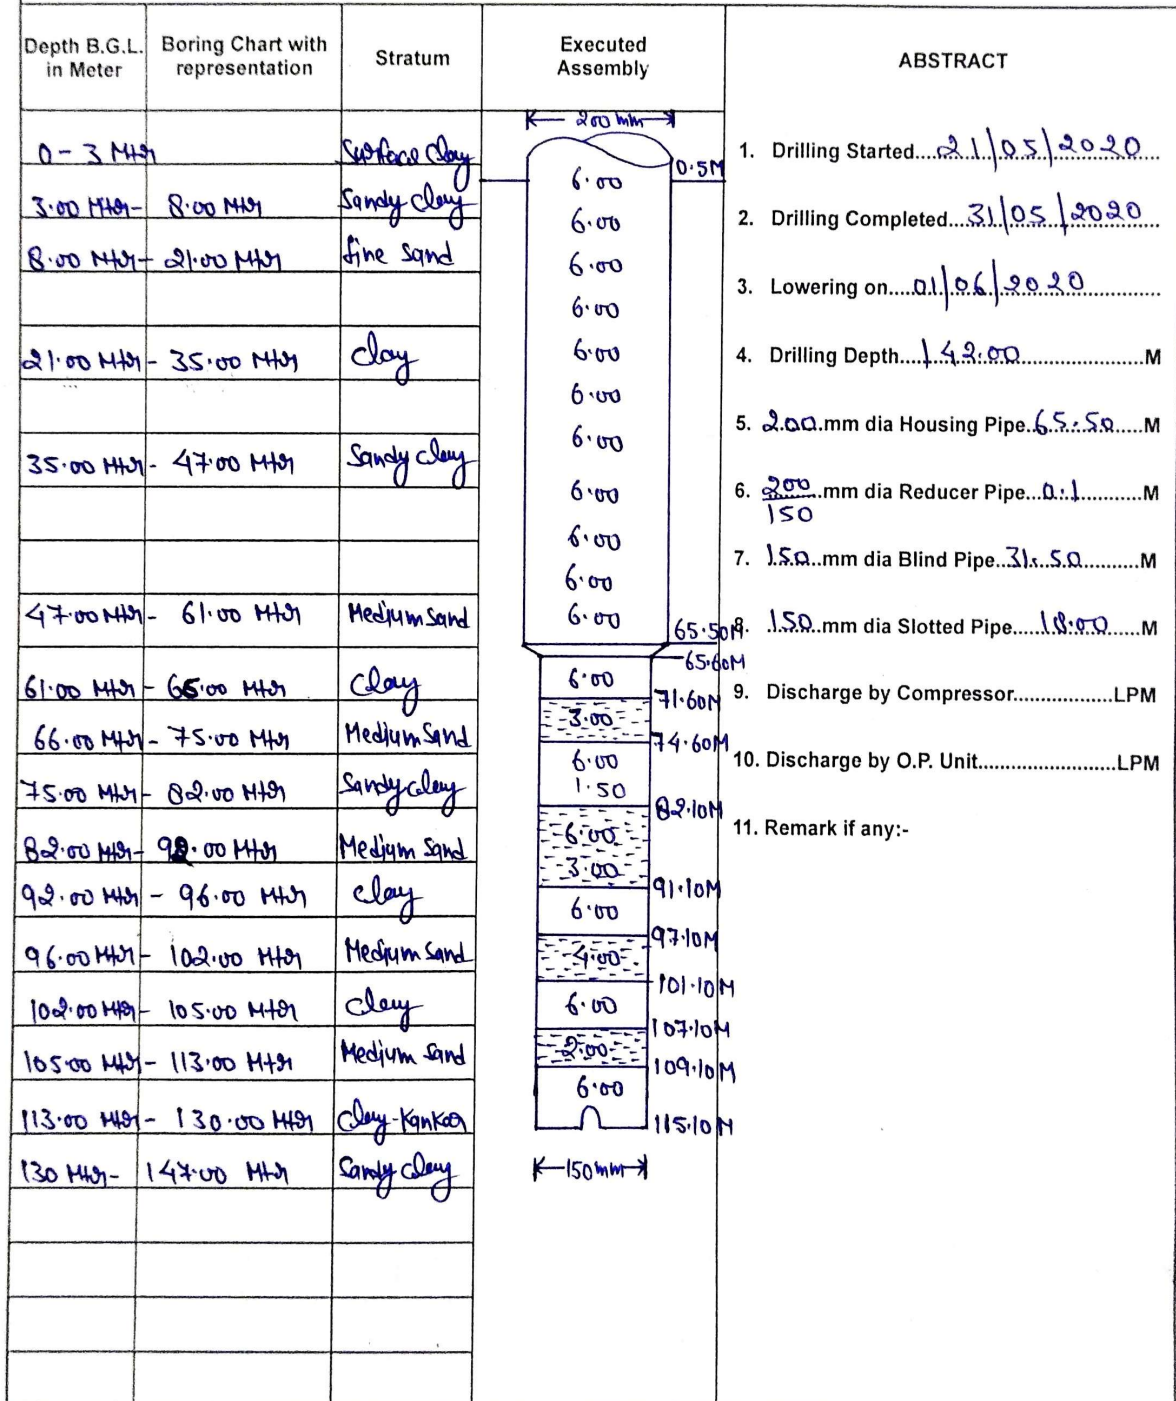 Depth B.G.L. in Meter | Boring Chart with representation | Stratum | Executed Assembly | ABSTRACT
0 - 3 Mtr | Surface Clay
3.00 Mtr - 8.00 Mtr | Sandy clay
8.00 Mtr - 21.00 Mtr | fine sand
21.00 Mtr - 35.00 Mtr | clay
35.00 Mtr - 47.00 Mtr | Sandy clay
47.00 Mtr - 61.00 Mtr | Medium Sand
61.00 Mtr - 66.00 Mtr | Clay
66.00 Mtr - 75.00 Mtr | Medium Sand
75.00 Mtr - 82.00 Mtr | Sandy clay
82.00 Mtr - 92.00 Mtr | Medium Sand
92.00 Mtr - 96.00 Mtr | clay
96.00 Mtr - 102.00 Mtr | Medium Sand
102.00 Mtr - 105.00 Mtr | clay
105.00 Mtr - 113.00 Mtr | Medium Sand
113.00 Mtr - 130.00 Mtr | Clay-Kankar
130 Mtr - 147.00 Mtr | Sandy clay
200 mm
0.5M
6.00
6.00
6.00
6.00
6.00
6.00
6.00
6.00
6.00
6.00
6.00
65.50M
65.60M
6.00
71.60M
3.00
74.60M
6.00
1.50
82.10M
6.00
3.00
91.10M
6.00
97.10M
4.00
101.10M
6.00
107.10M
2.00
109.10M
6.00
115.10M
150mm
1. Drilling Started....21/05/2020
2. Drilling Completed...31/05/2020
3. Lowering on.....01/06/2020
4. Drilling Depth....142.00....M
5. 200.mm dia Housing Pipe.65.50.....M
6. 200/150.mm dia Reducer Pipe...0.1...........M
7. 150..mm dia Blind Pipe..31.50..........M
8. 150..mm dia Slotted Pipe.....18.00......M
9. Discharge by Compressor..................LPM
10. Discharge by O.P. Unit.........................LPM
11. Remark if any:-